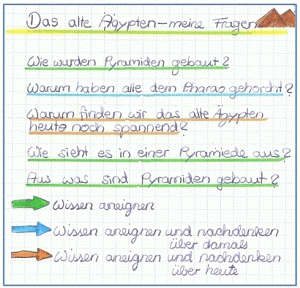 Das alte Ägypten-meine Fragen
Wie wurden Pyramiden gebaut?
Warum haben alle dem Pharao gehorcht?
Warum finden wir das alte Ägypten
heute noch spannend?
Wie sieht es in einer Pyramiede aus?
Aus was sind Pyramiden gebaut?
Wissen aneignen
Wissen aneignen und nachdenken
über damals
Wissen aneignen und nachdenken
über heute